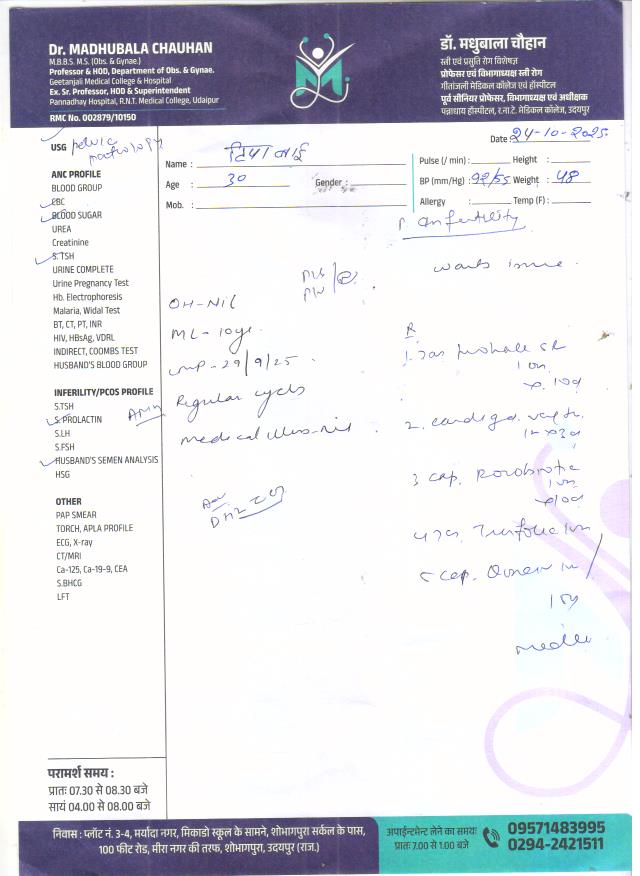 Dr. MADHUBALA CHAUHAN
M.B.B.S. M.S. (Obs. & Gynae.)
Professor & HOD, Department of Obs. & Gynae.
Geetanjali Medical College & Hospital
Ex. Sr. Professor, HOD & Superintendent
Pannadhay Hospital, R.N.T. Medical College, Udaipur
RMC No. 002879/10150
डॉ. मधुबाला चौहान
स्त्री एवं प्रसुति रोग विशेषज्ञ
प्रोफेसर एवं विभागाध्यक्ष स्त्री रोग
गीतांजली मेडिकल कॉलेज एवं हॉस्पीटल
पूर्व सीनियर प्रोफेसर, विभागाध्यक्ष एवं अधीक्षक
पन्नाधाय हॉस्पिटल, र.ना.टे. मेडिकल कॉलेज, उदयपुर
Date 24-10-2025
USG pelvic
Name :
Age : 30 Gender :
Mob. :
Pulse (/ min) : Height :
BP (mm/Hg) : 92/55 Weight : 48
Allergy : Temp (F) :
ANC PROFILE
BLOOD GROUP
CBC
BLOOD SUGAR
UREA
Creatinine
S.TSH
URINE COMPLETE
Urine Pregnancy Test
Hb. Electrophoresis
Malaria, Widal Test
BT, CT, PT, INR
HIV, HBsAg, VDRL
INDIRECT, COOMBS TEST
HUSBAND'S BLOOD GROUP
INFERILITY/PCOS PROFILE
S.TSH
S.PROLACTIN AMH
S.LH
S.FSH
HUSBAND'S SEMEN ANALYSIS
HSG
OTHER
PAP SMEAR
TORCH, APLA PROFILE
ECG, X-ray
CT/MRI
Ca-125, Ca-19-9, CEA
S.BHCG
LFT
OH-Nil
ML-10yr
LMP-29/9/25
Regular cycles
medical illness-nil
Infertility
wants issue
R
3 cap.
5 cap.
परामर्श समय :
प्रातः 07.30 से 08.30 बजे
सायं 04.00 से 08.00 बजे
निवास : प्लॉट नं. 3-4, मर्यादा नगर, मिकाडो स्कूल के सामने, शोभागपुरा सर्कल के पास,
100 फीट रोड, मीरा नगर की तरफ, शोभागपुरा, उदयपुर (राज.)
अपाईन्टमेन्ट लेने का समयः
प्रातः 7.00 से 1.00 बजे
09571483995
0294-2421511